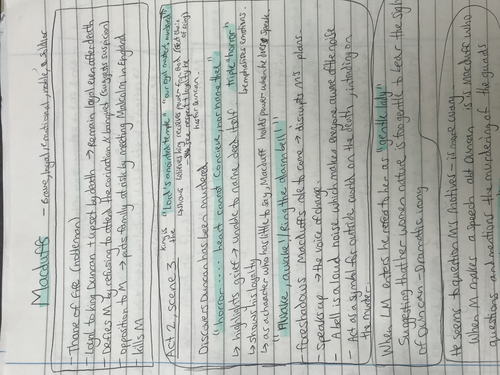 Macduff
- Brave, loyal, emotional, noble, soldier
- Thane of Fife (nobleman)
- Loyal to king Duncan + upset by death → Remain loyal even after death
- Defies M by refusing to attend the coronation & banquet (suggests suspicion)
- opposition to M → puts family at risk by meeting Malcolm in England
- kills M
Act 2, scene 3
King is the "Lord's anointed temple" "our royal master's murdered"
Discovers Duncan has been murdered,
"horror..... heart cannot conceive, nor name thee"
↳ highlights grief → unable to name deed itself triple "horror"
emphasises emotions.
↳ shows his loyalty
↳ is a character who has little to say, Macduff holds power when he speak.
"Awake, awake! / Ring the alarm bell"
- foreshadows Macduff's role to come → disrupts M's plans
- Speaks up → the voice of change
- A bell is a loud noise which makes everyone aware of the noise
- Act as a symbol for outside world on the death, intruding on
the murder
When LM enters he refered to her as "gentle lady"
Suggesting that her women nature is too gentle to hear the sight
of Duncan - Dramatic irony
He seems to question M's motives - is more wary
When M makes a speech abt Duncan it is Macduff who
questions and the murdering of the guards